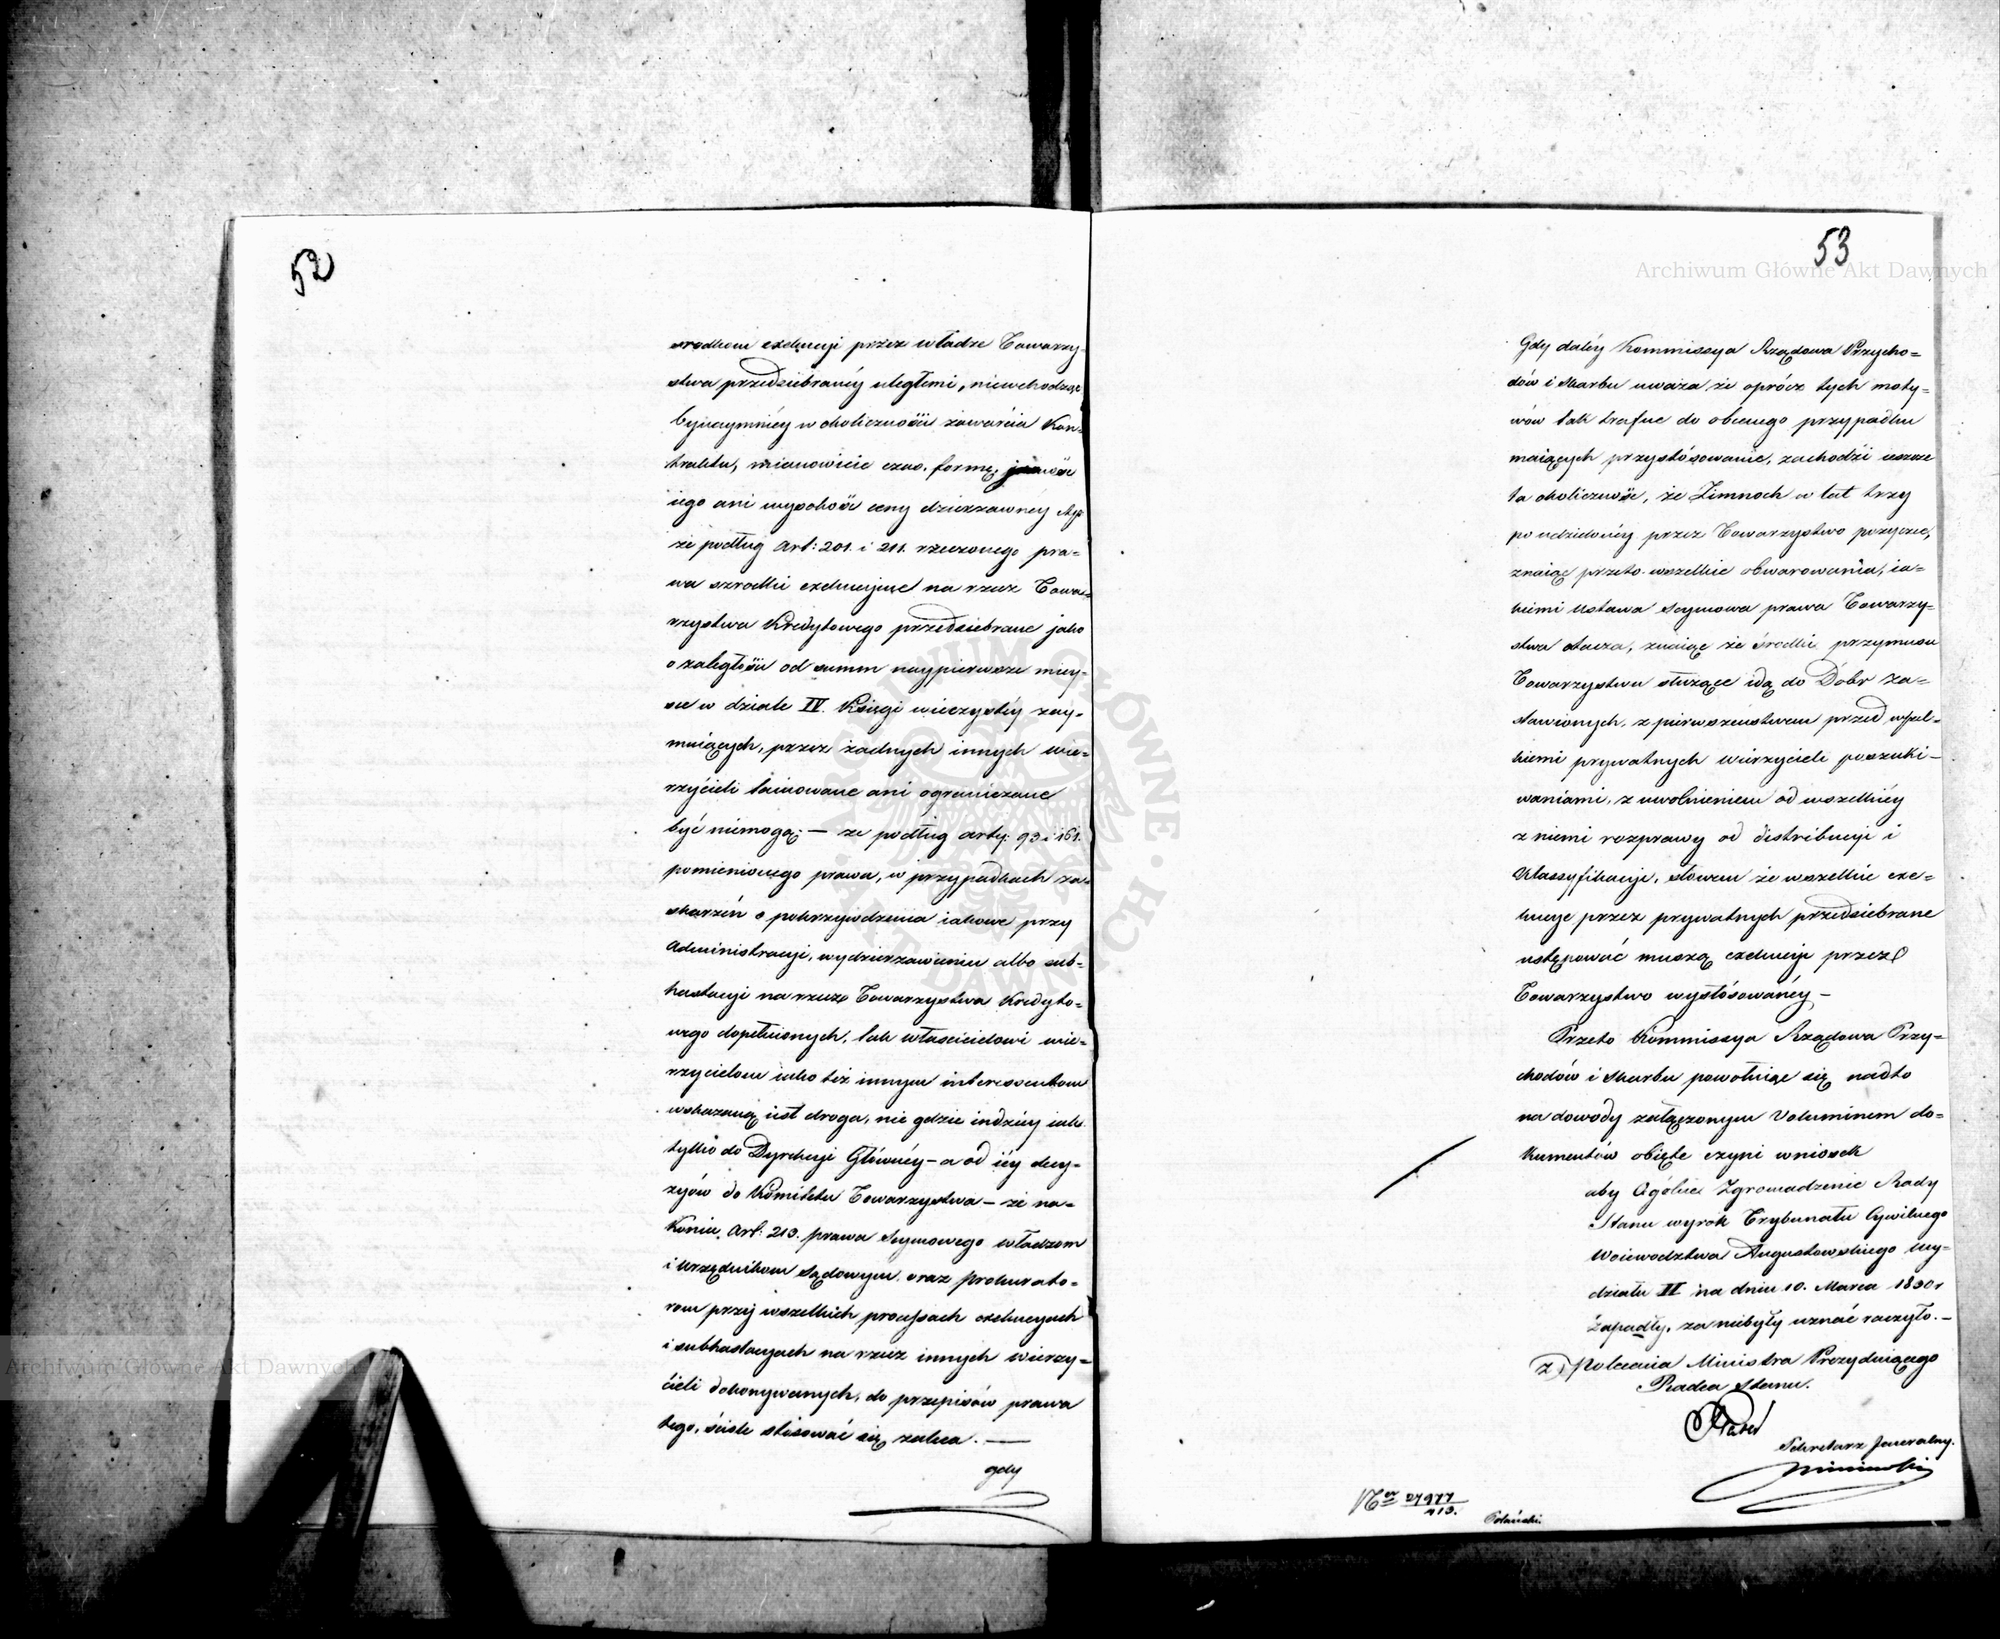 52
srodkom exekucyi przez władze Towarzy-
stwa przedsiebranéy uległemi, niewchodząc
bynaymniéy w okoliczności zawarcia Kon-
traktu, mianowicie czas, formę,
iego ani wysokość ceny dzierzawnéy
że podług Art: 201. i 211. rzeczonego pra-
wa szrodki exekucyjne na rzecz Towa-
rzystwa Kredytowego przedsiebrane jako
o zaległości od summ naypierwsze miey-
sce w dziale IV. Księgi wieczystéy zay-
muiących, przez żadnych innych wie-
rzycieli tamowane ani ograniczane
być niemogą; — że podług arty: 93 i 161.
pomienionego prawa, w przypadkach za-
skarżeń o pokrzywdzenia iakowe przy
Administracyi, wydzierzawieniu albo sub-
hastacyi na rzecz Towarzystwa Kredyto-
wego dopełnionych, tak właścicielowi wie-
rzycielom iako też innym interessentom
wskazaną iest droga, nie gdzie indziéy iak
tylko do Dyrekcyi Głównéy — a od iéy decy-
zyów do Komitetu Towarzystwa — że na-
koniec, Art: 213. prawa Seymowego władzom
i urzędnikom sądowym oraz prokurato-
rom przy wszelkich processach exekucyach
i subhastacyach na rzecz innych wierzy-
cieli dokonywanych, do przepisów prawa
tego, ściśle stosować się zaleca. —
gdy
53
Gdy daléy Kommissya Rządowa Przycho=
dów i Skarbu uważa że oprócz tych moty=
wów tak trafne do obecnego przypadku
maiących przystósowanie, zachodzi ieszcze
ta okoliczność, że Zimnoch w lat trzy
po udzielonéy przez Towarzystwo pożyczce,
znaiąc przeto wszelkie obwarowania, ia=
kiemi Ustawa Seymowa prawa Towarzy=
stwa otacza, znaiąc że środki przymusu
Towarzystwu służące idą do Dóbr za=
stawionych, z pierwszeństwem przed wszel=
kiemi prywatnych wierzycieli poszuki=
waniami, z uwolnieniem od wszelkiéy
z niemi rozprawy od distribucyi i
klassyfikacyi, słowem że wszelkie exe=
kucye przez prywatnych przedsiebrane
ustępować muszą exekucyi przez
Towarzystwo wystósowanéy —
Przeto Kommissya Rządowa Przy=
chodów i Skarbu powołuiąc się nadto
na dowody załączonym Voluminem do=
kumentów obięte czyni wniosek
aby Ogólne Zgromadzenie Rady
Stanu wyrok Trybunału Cywilnego
Woiewodztwa Augustowskiego Wy=
działu II na dniu 10. Marca 1830 r
zapadły, za niebyły uznać raczyło. —
z Polecenia Ministra Prezyduiącego
Radca Stanu.
Sekretarz Jeneralny.
Nro 27977/413.